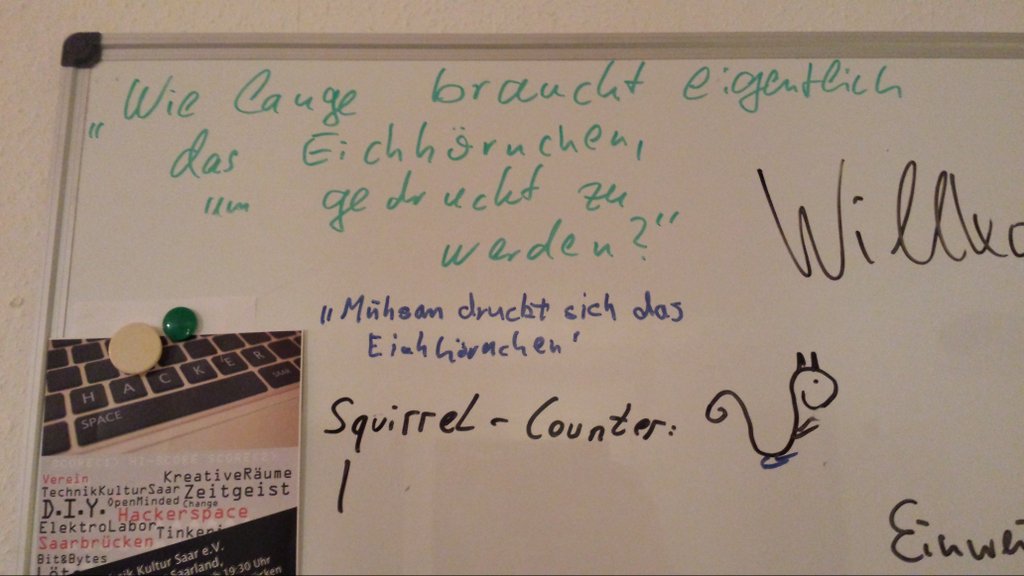 „Wie lange braucht eigentlich
das Eichhörnchen,
um gedruckt zu
werden?"
„Mühsam druckt sich das
Eichhörnchen"
Squirrel - Counter:
|
HACKER
SPACE
Verein KreativeRäume
TechnikKulturSaar Zeitgeist
D.I.Y. OpenMinded Change
Hackerspace
ElektroLabor
Saarbrücken
Bit&Bytes
Kultur Saar e.V.
Saarland,
19:30 Uhr